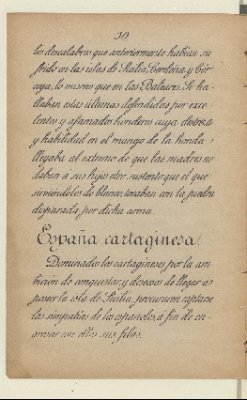 30
los descalabros que anteriormente habían su-
frido en las islas de Italia, Cerdeña, y Cór-
cega, lo mismo que en las Baleares. Se ha-
llaban estas últimas defendidas por exce-
lentes y afamados honderos cuya destreza
y habilidad en el manejo de la honda
llegaba al extremo de que las madres no
daban a sus hijos otro sustento que el que
sirviéndoles de blanco, tocaban con la piedra
disparada por dicha arma.
España cartaginesa.
Dominados los cartagineses por la am-
bición de conquistas, y deseosos de llegar a
poseer la isla de Sicilia, procuraron captarse
las simpatías de los españoles, a fin de en-
grosar con ellos sus filas.